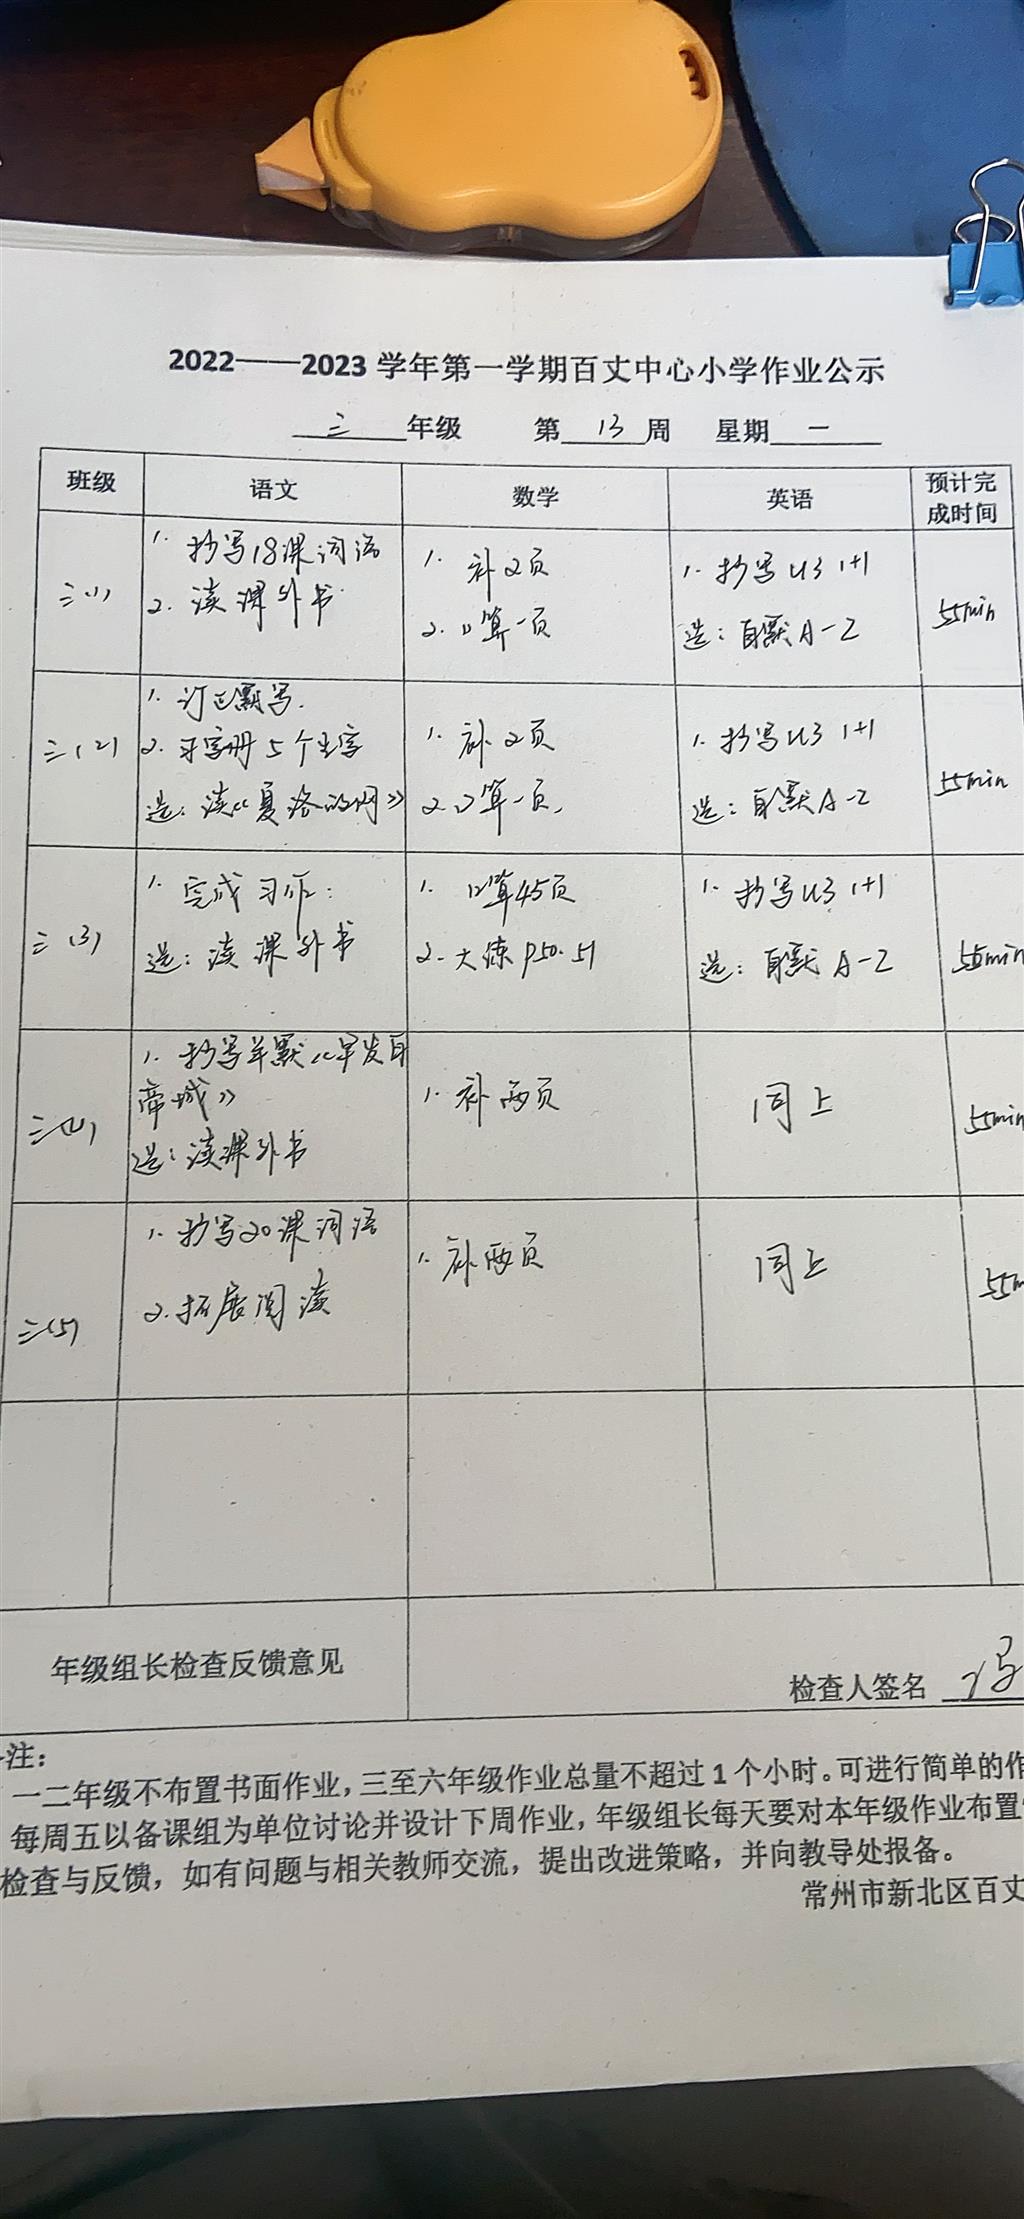 2022——2023 学年第一学期百丈中心小学作业公示
三 年级 第 13 周 星期 一
班级 语文 数学 英语 预计完成时间
三(1)
1. 抄写18课词语
2. 读课外书
1. 补2页
2. 口算一页
1. 抄写U3 1+1
选：自默A-Z
55min
三(2)
1. 订正默写.
2. 习字册5个生字
选：读《夏洛的网》
1. 补2页
2. 口算一页.
1. 抄写U3 1+1
选：自默A-Z
55min
三(3)
1. 完成习作:
选：读课外书
1. 口算45页
2. 大练P50.51
1. 抄写U3 1+1
选：自默A-Z
55min
三(4)
1. 抄写并默《早发白
帝城》
选：读课外书
1. 补两页
同上
55min
三(5)
1. 抄写20课词语
2. 拓展阅读
1. 补两页
同上
55m
年级组长检查反馈意见
检查人签名 冯
注：
一二年级不布置书面作业，三至六年级作业总量不超过 1 个小时。可进行简单的作
每周五以备课组为单位讨论并设计下周作业，年级组长每天要对本年级作业布置
检查与反馈，如有问题与相关教师交流，提出改进策略，并向教导处报备。
常州市新北区百丈